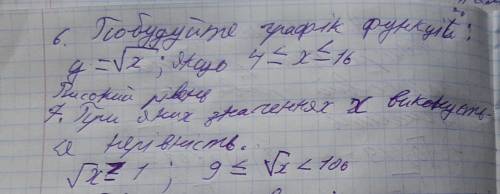 6. Побудуйте графік функції:
y = √x ; якщо 4 ≤ x ≤ 16
Високий рівень
7. При яких значеннях x виконуєть-
ся нерівність.
√x ≥ 1 ; 9 ≤ √x < 100